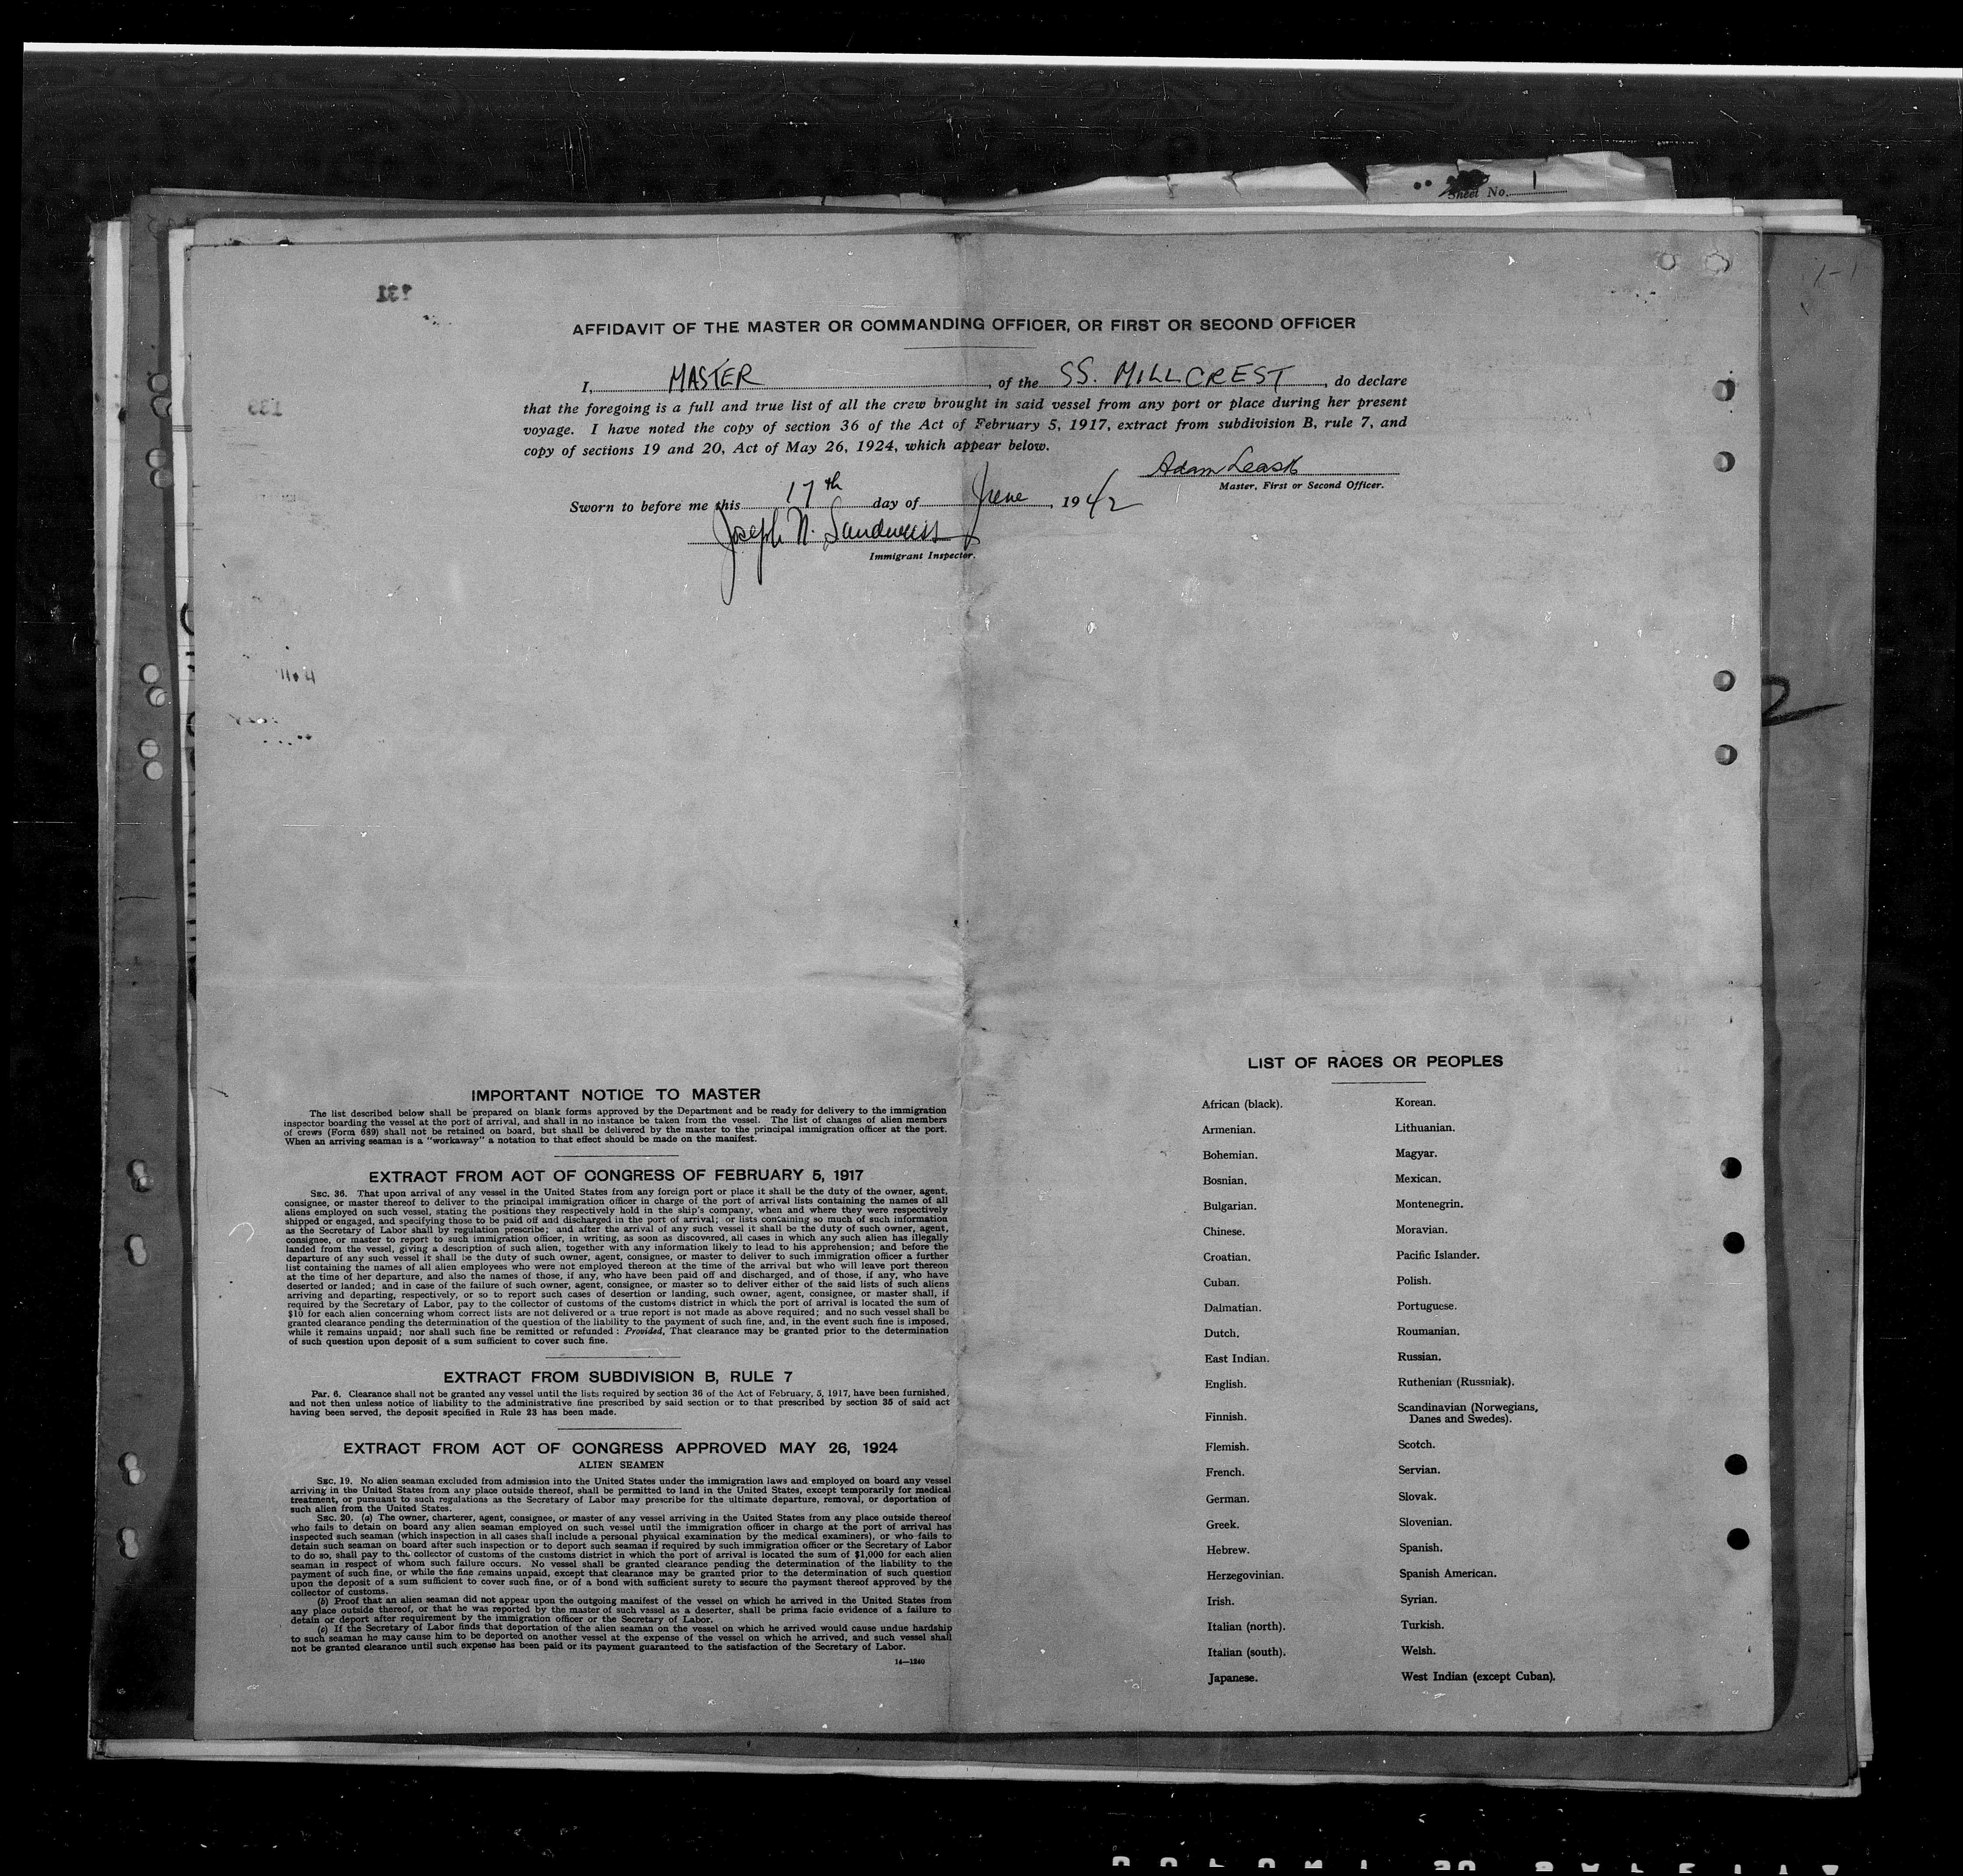 Sheet No. 1
AFFIDAVIT OF THE MASTER OR COMMANDING OFFICER, OR FIRST OR SECOND OFFICER
I, MASTER, of the SS. MILLCREST, do declare
that the foregoing is a full and true list of all the crew brought in said vessel from any port or place during her present
voyage. I have noted the copy of section 36 of the Act of February 5, 1917, extract from subdivision B, rule 7, and
copy of sections 19 and 20, Act of May 26, 1924, which appear below.
Adam Leask
Master, First or Second Officer.
Sworn to before me this 17th day of June, 1942
Joseph N. Sandweiss
Immigrant Inspector.
IMPORTANT NOTICE TO MASTER
The list described below shall be prepared on blank forms approved by the Department and be ready for delivery to the immigration
inspector boarding the vessel at the port of arrival, and shall in no instance be taken from the vessel. The list of changes of alien members
of crews (Form 689) shall not be retained on board, but shall be delivered by the master to the principal immigration officer at the port.
When an arriving seaman is a "workaway" a notation to that effect should be made on the manifest.
EXTRACT FROM ACT OF CONGRESS OF FEBRUARY 5, 1917
SEC. 36. That upon arrival of any vessel in the United States from any foreign port or place it shall be the duty of the owner, agent,
consignee, or master thereof to deliver to the principal immigration officer in charge of the port of arrival lists containing the names of all
aliens employed on such vessel, stating the positions they respectively hold in the ship's company, when and where they were respectively
shipped or engaged, and specifying those to be paid off and discharged in the port of arrival; or lists containing so much of such information
as the Secretary of Labor shall by regulation prescribe; and after the arrival of any such vessel it shall be the duty of such owner, agent,
consignee, or master to report to such immigration officer, in writing, as soon as discovered, all cases in which any such alien has illegally
landed from the vessel, giving a description of such alien, together with any information likely to lead to his apprehension; and before the
departure of any such vessel it shall be the duty of such owner, agent, consignee, or master to deliver to such immigration officer a further
list containing the names of all alien employees who were not employed thereon at the time of the arrival but who will leave port thereon
at the time of her departure, and also the names of those, if any, who have been paid off and discharged, and of those, if any, who have
deserted or landed; and in case of the failure of such owner, agent, consignee, or master so to deliver either of the said lists of such aliens
arriving and departing, respectively, or so to report such cases of desertion or landing, such owner, agent, consignee, or master shall, if
required by the Secretary of Labor, pay to the collector of customs of the customs district in which the port of arrival is located the sum of
$10 for each alien concerning whom correct lists are not delivered or a true report is not made as above required; and no such vessel shall be
granted clearance pending the determination of the question of the liability to the payment of such fine, and, in the event such fine is imposed,
while it remains unpaid; nor shall such fine be remitted or refunded: Provided, That clearance may be granted prior to the determination
of such question upon deposit of a sum sufficient to cover such fine.
EXTRACT FROM SUBDIVISION B, RULE 7
Par. 6. Clearance shall not be granted any vessel until the lists required by section 36 of the Act of February, 5, 1917, have been furnished,
and not then unless notice of liability to the administrative fine prescribed by said section or to that prescribed by section 35 of said act
having been served, the deposit specified in Rule 23 has been made.
EXTRACT FROM ACT OF CONGRESS APPROVED MAY 26, 1924
ALIEN SEAMEN
SEC. 19. No alien seaman excluded from admission into the United States under the immigration laws and employed on board any vessel
arriving in the United States from any place outside thereof, shall be permitted to land in the United States, except temporarily for medical
treatment, or pursuant to such regulations as the Secretary of Labor may prescribe for the ultimate departure, removal, or deportation of
such alien from the United States.
SEC. 20. (a) The owner, charterer, agent, consignee, or master of any vessel arriving in the United States from any place outside thereof
who fails to detain on board any alien seaman employed on such vessel until the immigration officer in charge at the port of arrival has
inspected such seaman (which inspection in all cases shall include a personal physical examination by the medical examiners), or who fails to
detain such seaman on board after such inspection or to deport such seaman if required by such immigration officer or the Secretary of Labor
to do so, shall pay to the collector of customs of the customs district in which the port of arrival is located the sum of $1,000 for each alien
seaman in respect of whom such failure occurs. No vessel shall be granted clearance pending the determination of the liability to the
payment of such fine, or while the fine remains unpaid, except that clearance may be granted prior to the determination of such question
upon the deposit of a sum sufficient to cover such fine, or of a bond with sufficient surety to secure the payment thereof approved by the
collector of customs.
(b) Proof that an alien seaman did not appear upon the outgoing manifest of the vessel on which he arrived in the United States from
any place outside thereof, or that he was reported by the master of such vessel as a deserter, shall be prima facie evidence of a failure to
detain or deport after requirement by the immigration officer or the Secretary of Labor.
(c) If the Secretary of Labor finds that deportation of the alien seaman on the vessel on which he arrived would cause undue hardship
to such seaman he may cause him to be deported on another vessel at the expense of the vessel on which he arrived, and such vessel shall
not be granted clearance until such expense has been paid or its payment guaranteed to the satisfaction of the Secretary of Labor.
14—1240
LIST OF RACES OR PEOPLES
African (black).
Armenian.
Bohemian.
Bosnian.
Bulgarian.
Chinese.
Croatian.
Cuban.
Dalmatian.
Dutch.
East Indian.
English.
Finnish.
Flemish.
French.
German.
Greek.
Hebrew.
Herzegovinian.
Irish.
Italian (north).
Italian (south).
Japanese.
Korean.
Lithuanian.
Magyar.
Mexican.
Montenegrin.
Moravian.
Pacific Islander.
Polish.
Portuguese.
Roumanian.
Russian.
Ruthenian (Russniak).
Scandinavian (Norwegians,
Danes and Swedes).
Scotch.
Servian.
Slovak.
Slovenian.
Spanish.
Spanish American.
Syrian.
Turkish.
Welsh.
West Indian (except Cuban).